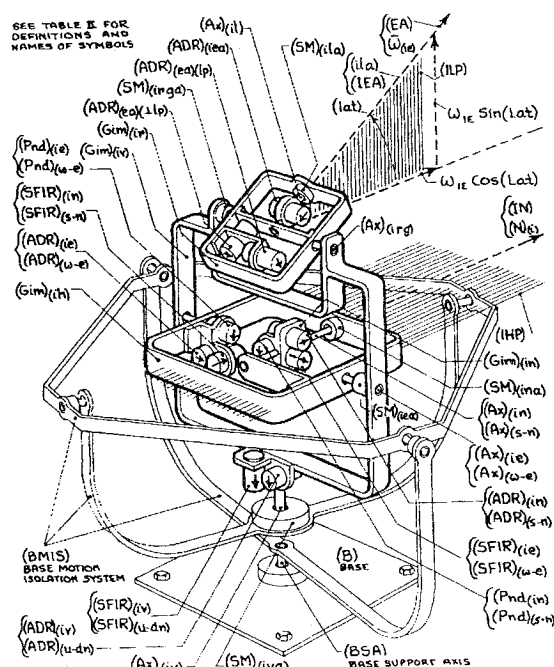 SEE TABLE II FOR
DEFINITIONS AND
NAMES OF SYMBOLS
(Ax)(il)
(ADR)(iea)
(ADR)(ea)(lp)
(SM)(irga)
(ADR)(ea)(⊥lp)
(Gim)(ir)
(Gim)(iv)
(Pnd)(ie)
(Pnd)(w-e)
(SFIR)(in)
(SFIR)(s-n)
(ADR)(ie)
(ADR)(w-e)
(Gim)(ih)
(SM)(ila)
(EA)
W̄(ie)
(ila)
(IEA)
(lat)
(ILP)
ω IE Sin(Lat)
ω IE Cos(Lat)
(Ax)(irg)
(IN)
(N)(i)
(IHP)
(Gim)(in)
(SM)(ina)
(Ax)(in)
(Ax)(s-n)
(SM)(iea)
(Ax)(ie)
(Ax)(w-e)
(ADR)(in)
(ADR)(s-n)
(SFIR)(ie)
(SFIR)(w-e)
(Pnd)(in)
(Pnd)(s-n)
(BMIS)
BASE MOTION
ISOLATION SYSTEM
(B)
BASE
(SFIR)(iv)
(SFIR)(u-dn)
(ADR)(iv)
(ADR)(u-dn)
(BSA)
BASE SUPPORT AXIS
(Ax)(iv)
(SM)(iva)